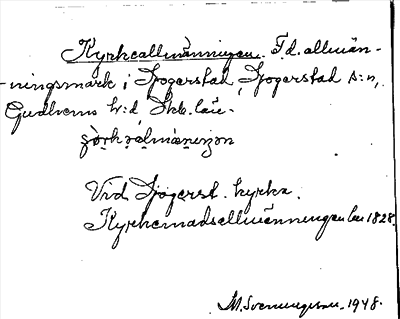 Kyrkeallmänningen. F.d. allmän-
ningsmark i Sjogerstad, Sjogerstad s:n,
Gudhems h:d, Skb. län.
Vid Sjogerst. kyrka.
Kyrkemadsallmänningen lm 1828.
M. Svenungsson. 1948.